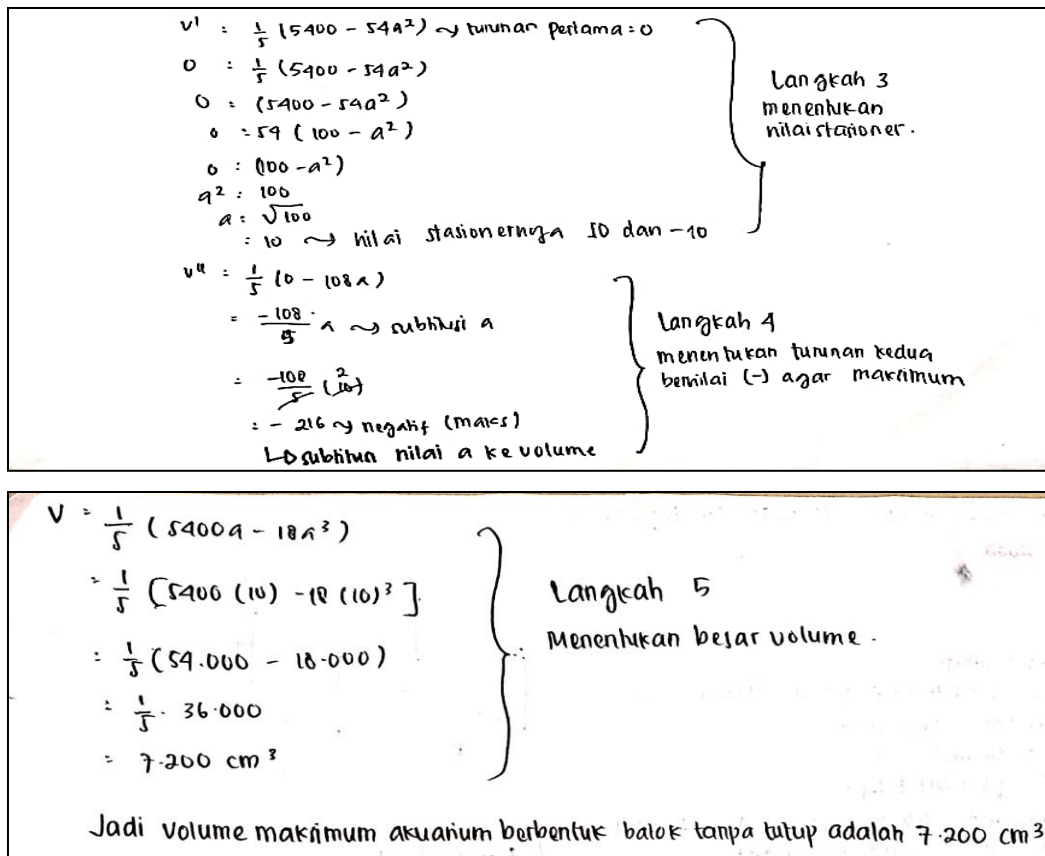 V' : 1/5 (5400 - 54a²) ~> turunan pertama = 0
0 : 1/5 (5400 - 54a²)
0 : (5400 - 54a²)
0 : 54 (100 - a²)
0 : (100 - a²)
a² : 100
a : √100
: 10 ~> nilai stasionernya 10 dan -10
Langkah 3
menentukan
nilai stasioner.
V'' : 1/5 (0 - 108a)
= -108/5 a ~> subtitusi a
: -108/5 (10) 2
: - 216 ~> negatif (maks)
↳ subtitusi nilai a ke volume
Langkah 4
menentukan turunan kedua
bernilai (-) agar maksimum
V = 1/5 (5400a - 18a³)
= 1/5 [5400 (10) - 18 (10)³]
: 1/5 (54.000 - 18.000)
: 1/5 . 36.000
= 7.200 cm³
Langkah 5
Menentukan besar volume.
Jadi volume maksimum akuarium berbentuk balok tanpa tutup adalah 7.200 cm³